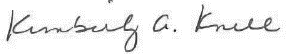 Kimberly A. Knill